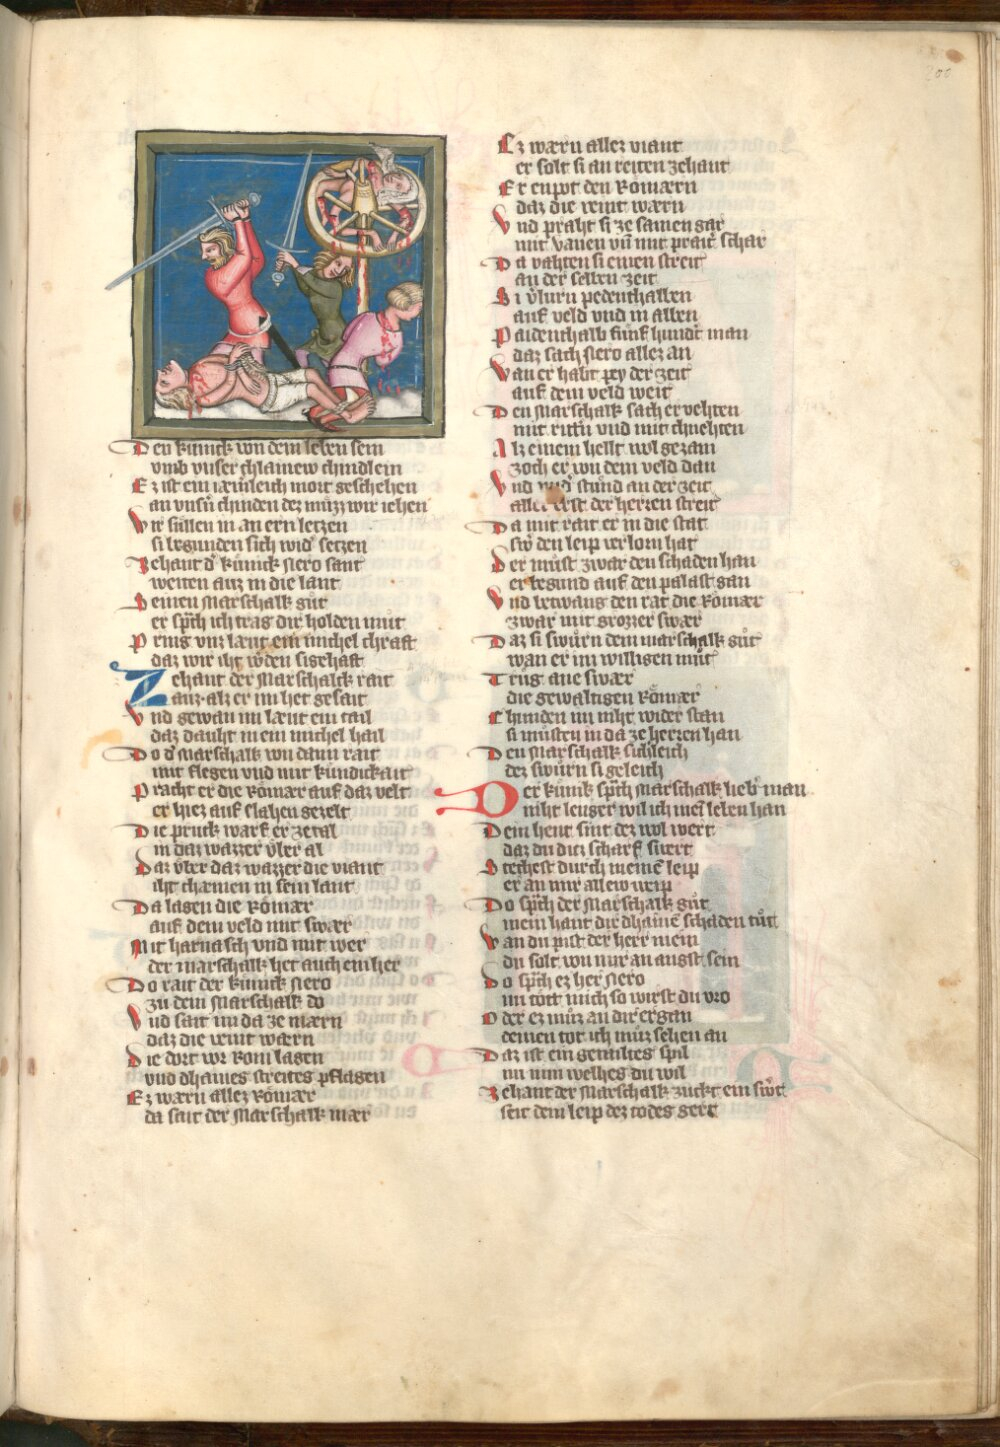 200
Den kunick von dem leben sein
vmb vnser chlainew chindlein
Ez ist ein iæmerleich mort geschehen
an vnsern chinden dez muzz wir iehen
Wir sullen in an ern letzen
si begunden sich wider setzen
Zehant der kunick Nero sant
weiten auz in die lant
Seinen Marschalk gut
er sprch ich trag dir holden mut
Pring vnz læut ein michel chraft
daz wir iht werden sigehaft
Zehant der Marschalck rait
Tauz. alz er im het gesait
Vnd gewan im læut ein tail
daz dauht in ein michel hail
Do der Marschalk von dann rait
mit flegen vnd mit kundickait
Pracht er die Römær auf daz velt
er hiez auf slahen gezelt
Die pruck warf er zetal
in daz wazzer vber al
Daz vber daz wazzer die viant
iht chæmen in sein lant
Da lagen die Römær
auf dem veld mit swær
Mit harnasch vnd mit wer
der marschalk het auch ein her
Do rait der kunick Nero
zu dem Marschalk do
Vnd sait im da ze mærn
daz die veint wærn
Die dort vor Rom lagen
vnd dhaines streites pflagen
Ez wærn allez Römær
da sait der Marschalk mær
Ez wærn allez viant
er solt si an reiten zehant
Er enpot den Römærn
daz die veint wærn
Vnd praht si ze samen gar
mit vanen vn mit prait schar
Da vahten si einen streit
an der selben zeit
Si vlurn pedenthalben
auf veld vnd in alben
Paidenthalb funf hundert man
daz sach Nero allez an
Wan er habt pey der zeit
auf dem veld weit
Den Marschalk sach er vehten
mit rittern vnd mit chnehten
Alz einem hellt wol gezam
zoch er von dem veld dan
Vnd stund an der zeit
aller erst der herzen streit
Da mit rait er in die stat
swer den leip verlorn hat
Der must zwar den schaden han
er begund auf den palast gan
Vnd betwang den rat die Römær
zwar mit grozzer swær
Daz si swurn dem marschalk gut
wan er im willigen mut
Trug ane swær
die gewaltigen Römær
Chunden im niht wider stan
si musten in da ze herren han
Den Marschalk sicherleich
dez swurn si geleich
Der kunik sprch Marschalk lieber man
niht lenger wil ich mein leben han
Dein hent sint dez wol wert
daz du diez scharf swert
Stechest durch meinen leip
er an mir allew weip
Do sprch der Marschalk gut
mein hant dir dhainen schaden tut
Wan du pist der herr mein
du solt von mir an angst sein
Do sprch ez her Nero
nu tott mich so wirst du vro
Oder ez muz an dir ergan
deinen tot ich muz sehen an
Daz ist ein getailtes spil
nu nim welhes du wil
Zehant der Marschalk zuckt ein swert
seit dem leip dez todes gert